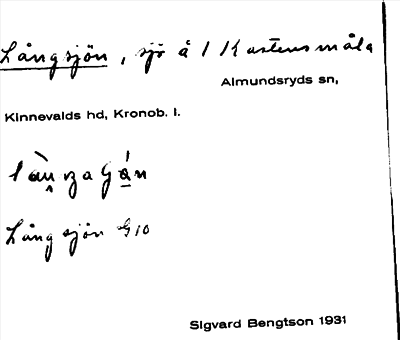 Långsjön, sjö å 1 Kastensmåla
Almundsryds sn,
Kinnevalds hd, Kronob. l.
Långsjön G10
Sigvard Bengtson 1931